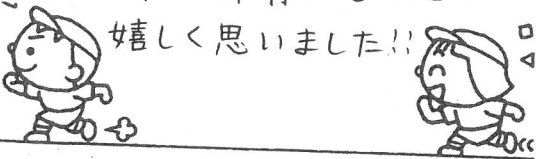 嬉しく思いました!!